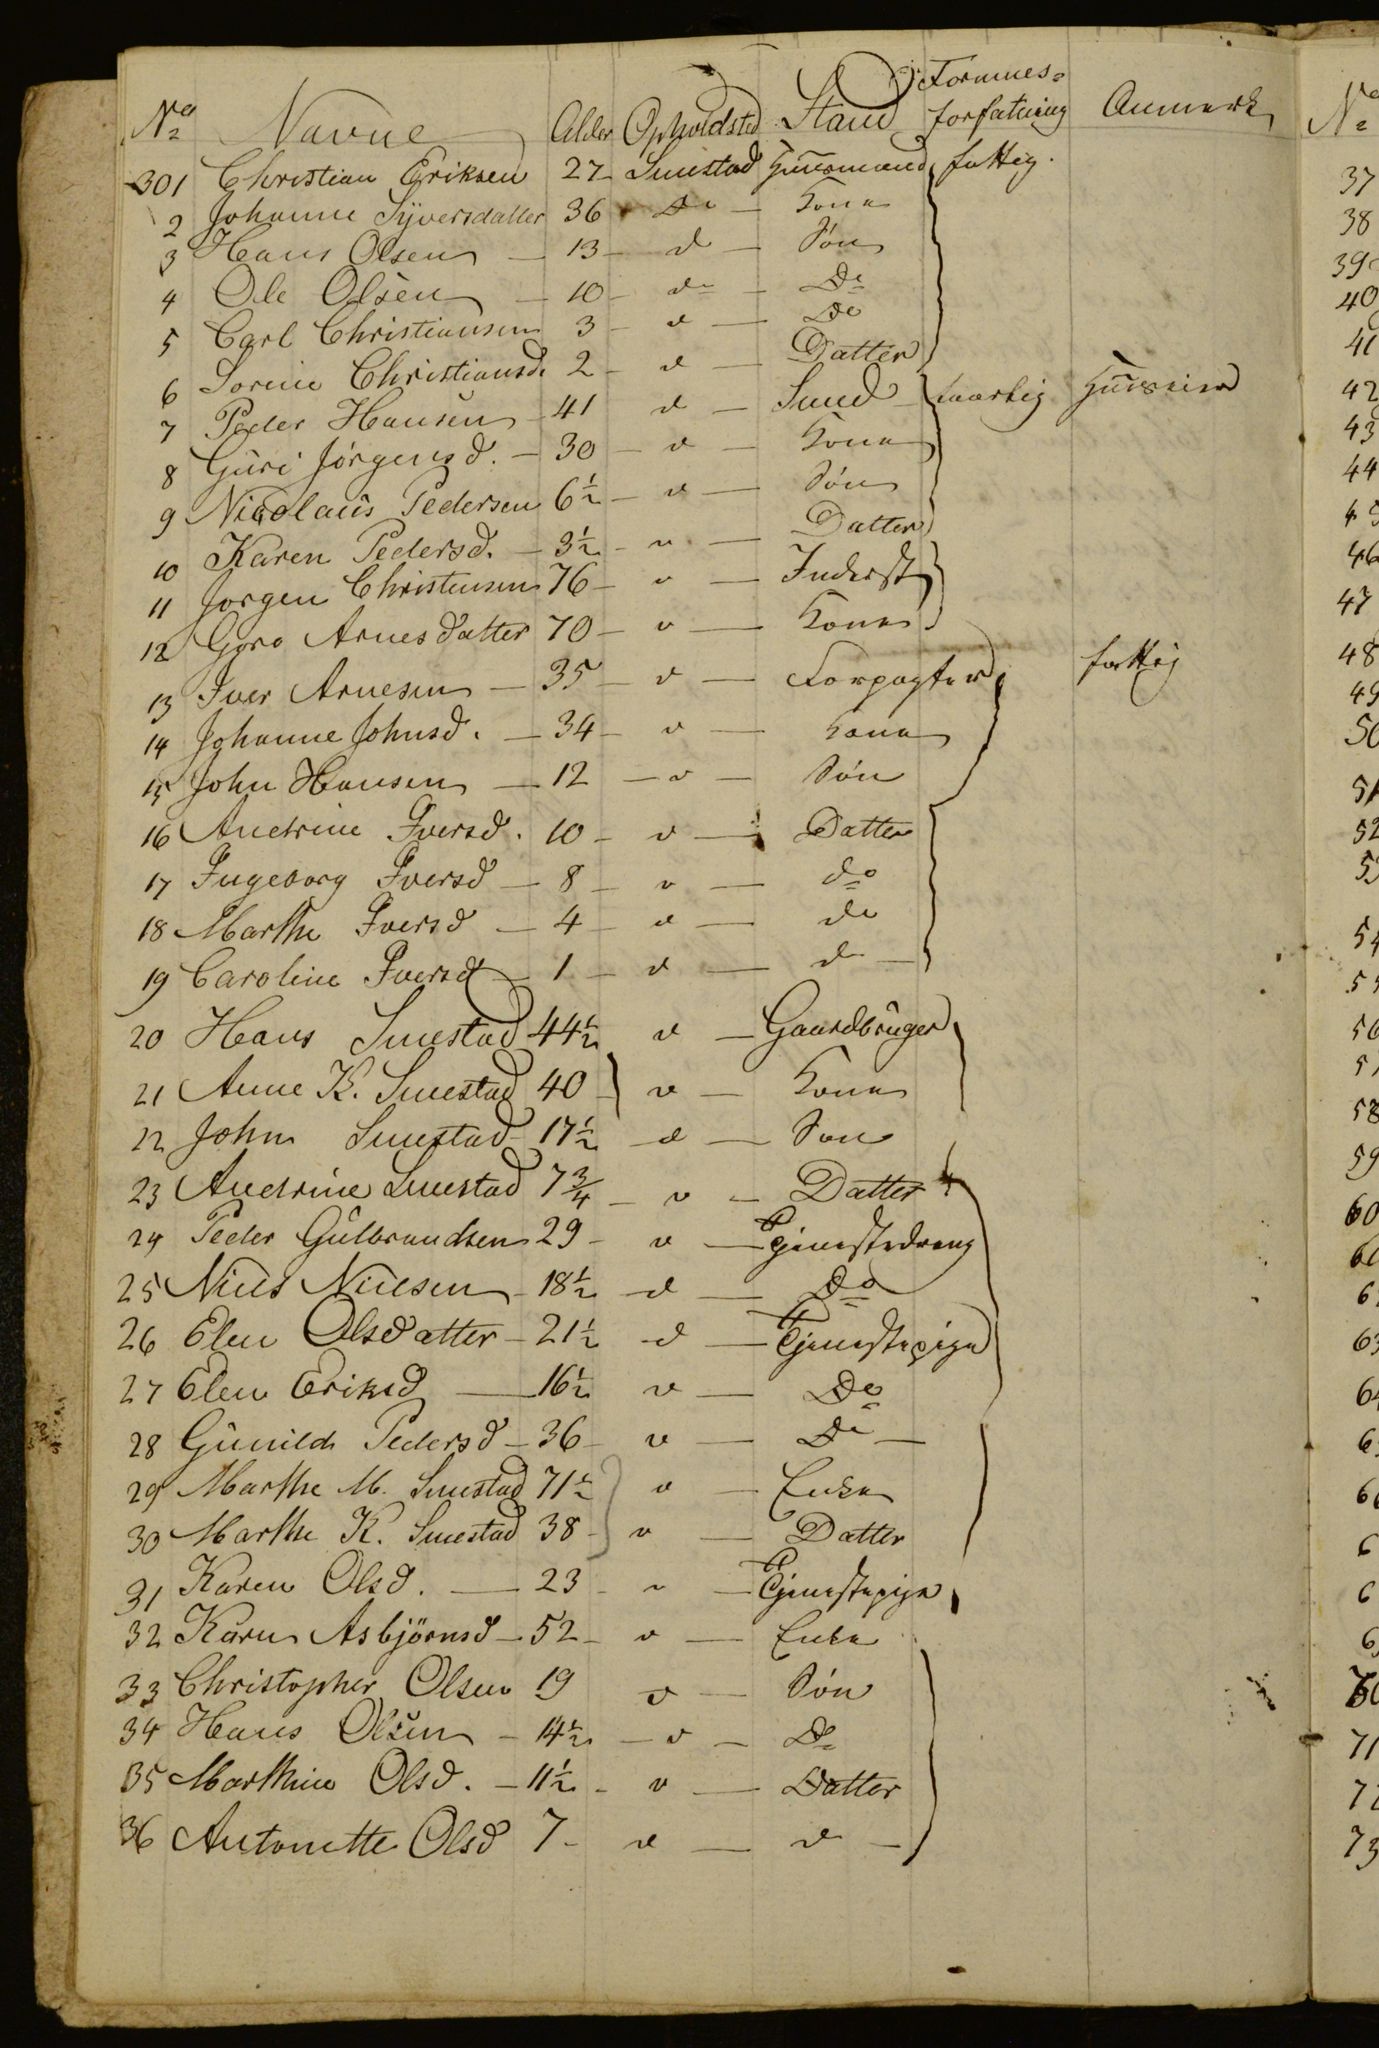 No Navne Alder Opholdsted Stand Formues= forfatning Anmærk No
301 Christian Eriksen 27 Smestad Huusmand fattig.
2 Johanne Syversdatter 36 Do Kone
3 Hans Olsen 13 d Søn
4 Ole Olsen 10 do Do
5 Carl Christiansen 3 d Do
6 Sorine Christiansd. 2 d Datter
7 Peder Hansen 41 d Smed
8 Guri Jørgensd. 30 d Kone
9 Nicolaus Pedersen 6½ d Søn
10 Karen Pedersd. 3½ d Datter
11 Jørgen Christensen 76 d Inderst
12 Goro Arnesdatter 70 d Kone
13 Iver Arnesen 35 d Forpagter fattig
14 Johanne Johnsd. 34 d Kone
15 John Hansen 12 d Søn
16 Andrine Iversd. 10 d Datter
17 Ingeborg Iversd 8 d do
18 Marthe Iversd 4 d do
19 Caroline Iversd 1 d d
20 Hans Smestad 44½ d Gaardbruger
21 Anne K. Smestad 40 d Kone
22 John Smestad 17½ d Søn
23 Andrine Smestad 7¾ d Datter
24 Peder Gulbrandsen 29 d Tjenestedreng
25 Niels Nielsen 18½ d Do
26 Elen Olsdatter 21½ d Tjenestepige
27 Elen Eriksd 16½ d Do
28 Gunild Pedersd 36 d Do
29 Marthe M. Smestad 71½ d Enke
30 Marthe K. Smestad 38 d Datter
31 Karen Olsd. 23 d Tjenestepige
32 Karen Asbjørnsd 52 d Enke
33 Christopher Olsen 19 d Søn
34 Hans Olsen 14½ d Do
35 Marthine Olsd. 11½ d Datter
36 Antonette Olsd 7 d d
37
38
39
40
41
42
43
44
45
46
47
48
49
50
51
52
53
54
55
56
57
58
59
60
61
62
63
64
65
66
6
6
6
70
71
72
73